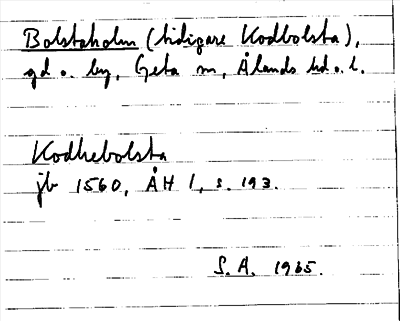 Bolstaholm (tidigare Kodbolsta),
gd o. by, Geta sn, Ålands hd o. l.
Kodhebolsta
jb 1560, ÅH 1, s. 193.
S. A. 1965.